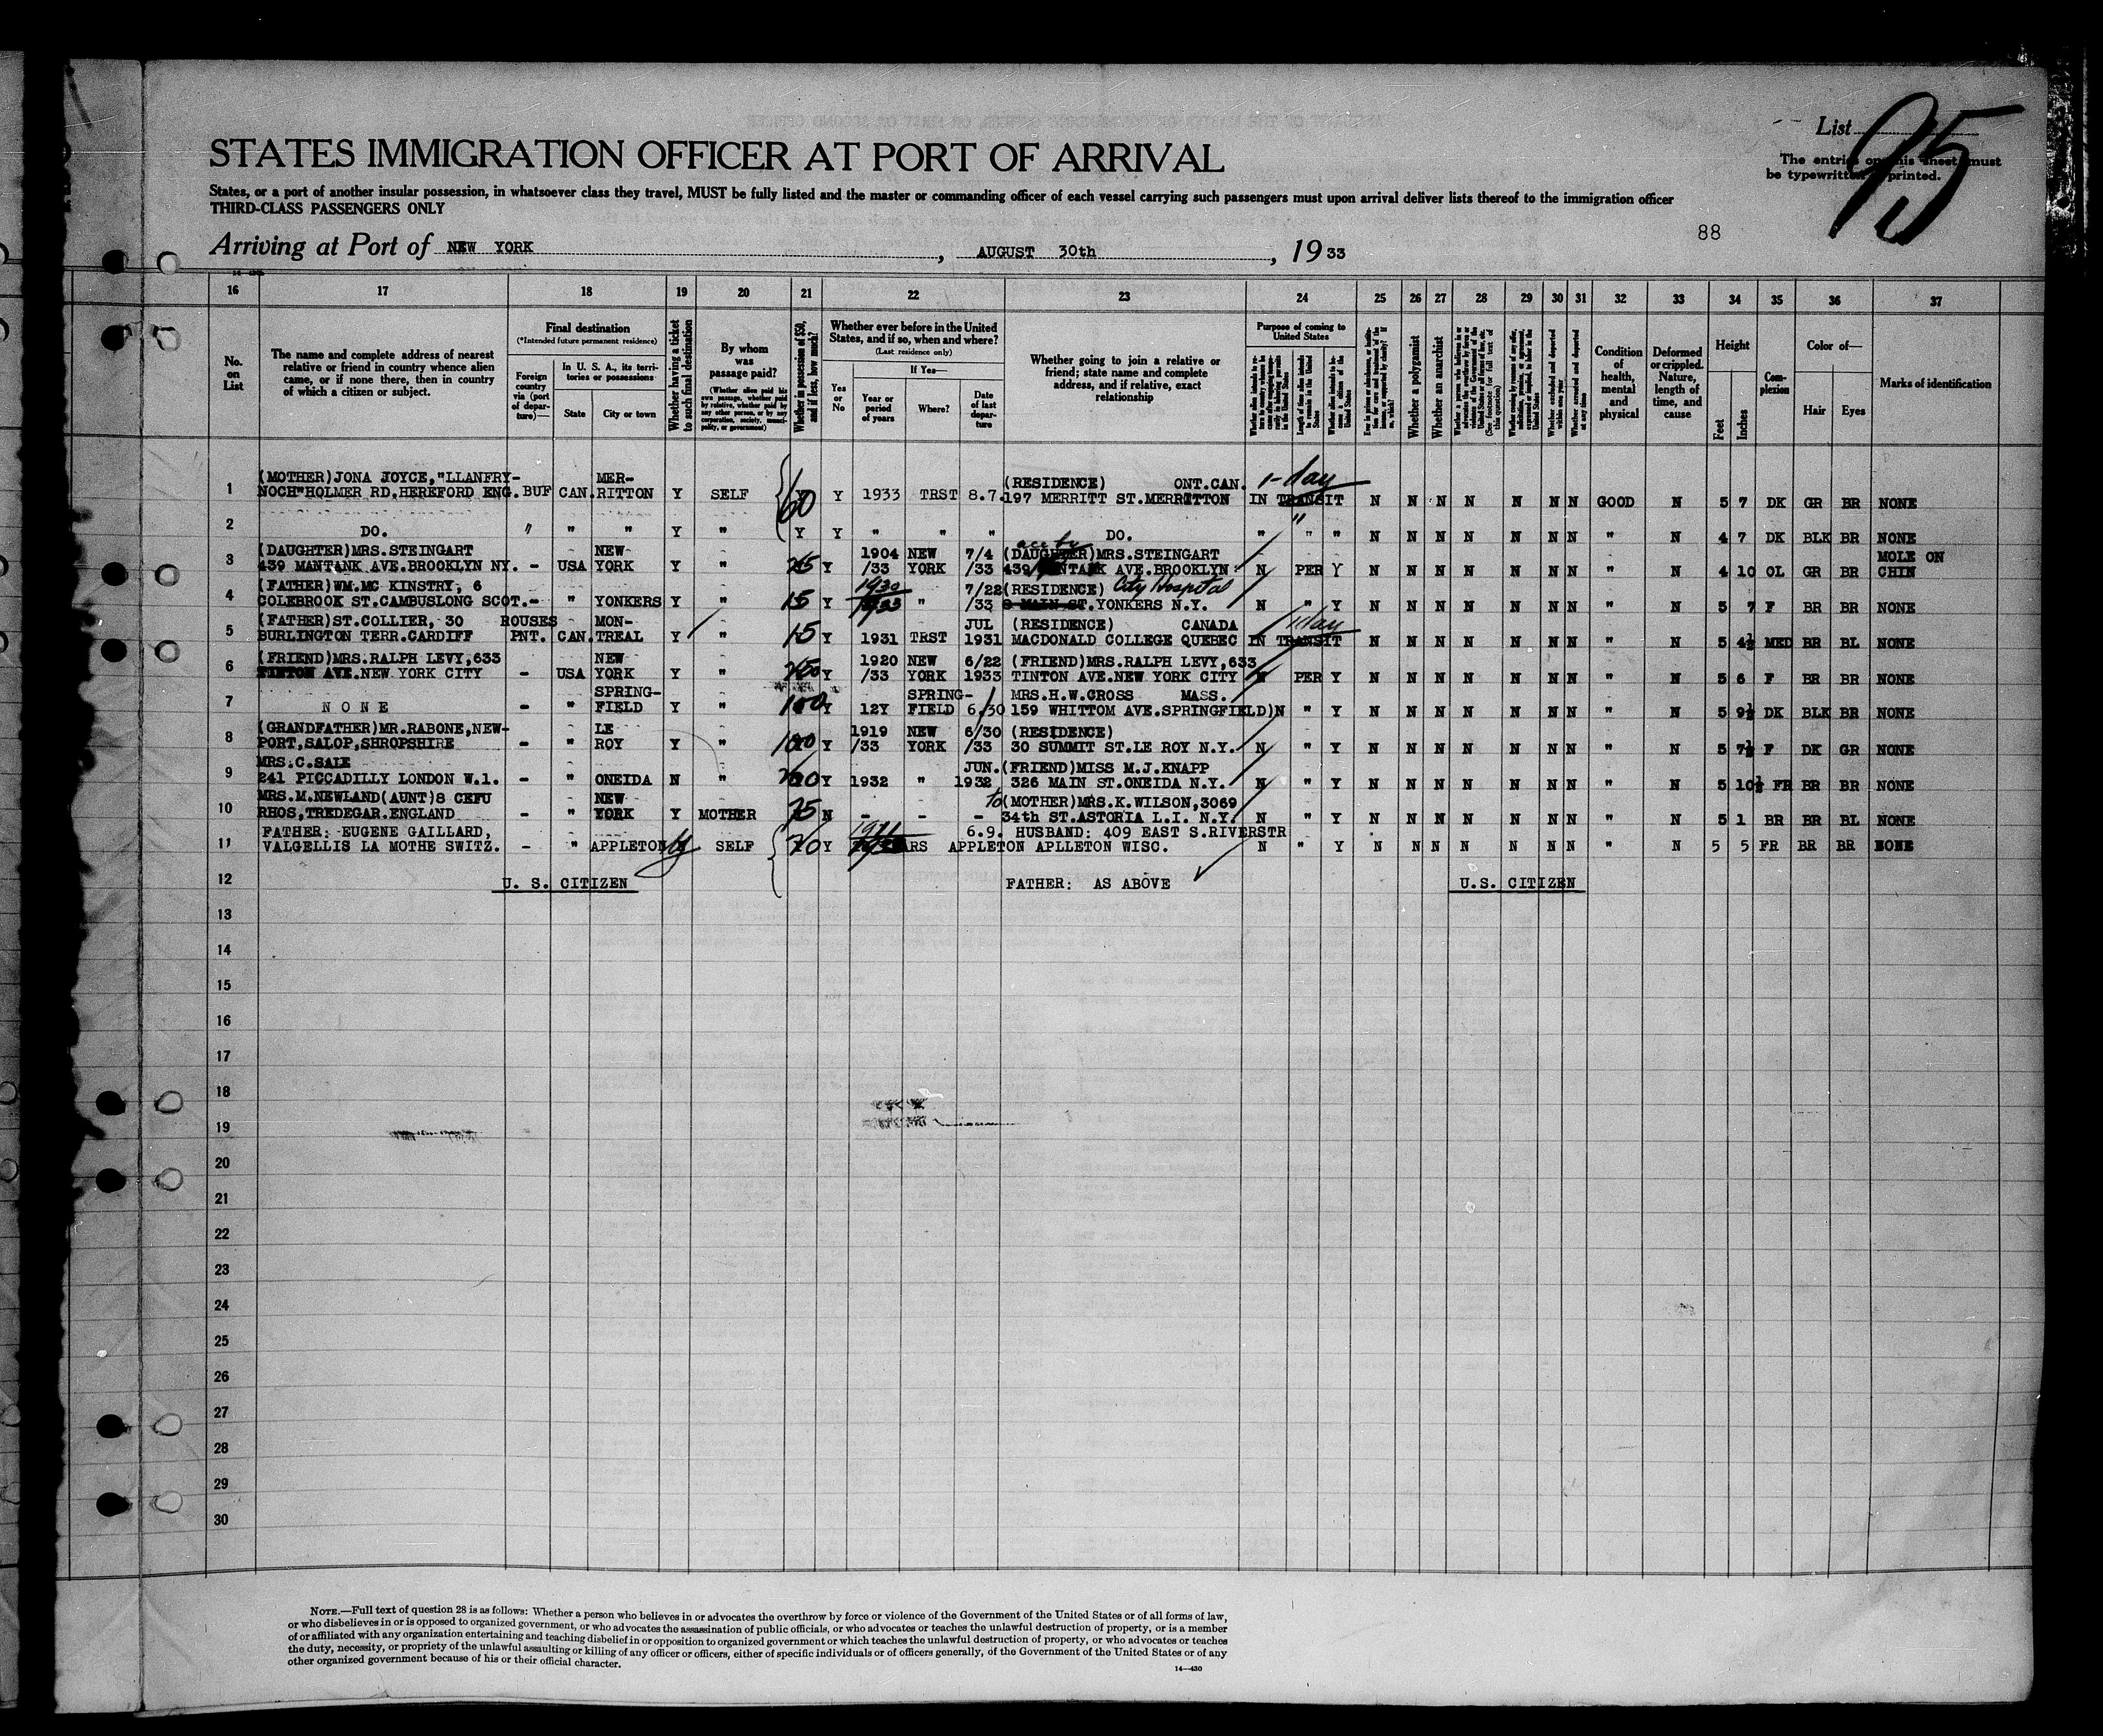 List 95
STATES IMMIGRATION OFFICER AT PORT OF ARRIVAL
The entries on this sheet must
be typewritten or printed.
States, or a port of another insular possession, in whatsoever class they travel, MUST be fully listed and the master or commanding officer of each vessel carrying such passengers must upon arrival deliver lists thereof to the immigration officer
THIRD-CLASS PASSENGERS ONLY
88
Arriving at Port of NEW YORK, AUGUST 30th, 19 33
16 17 18 19 20 21 22 23 24 25 26 27 28 29 30 31 32 33 34 35 36 37
No. on List
The name and complete address of nearest
relative or friend in country whence alien
came, or if none there, then in country
of which a citizen or subject.
Final destination
(*Intended future permanent residence)
Foreign country via (port of departure)—
In U. S. A., its territories or possessions
State
City or town
Whether having a ticket to such final destination
By whom was passage paid?
(Whether alien paid his own passage, whether paid by relative, whether paid by any other person, or by any corporation, society, municipality, or government)
Whether in possession of $50, and if less, how much?
Whether ever before in the United
States, and if so, when and where?
(Last residence only)
Yes or No
If Yes—
Year or period of years
Where?
Date of last departure
Whether going to join a relative or
friend; state name and complete
address, and if relative, exact
relationship
Purpose of coming to
United States
Length of time alien intends to remain in the United States
Whether alien intends to become a citizen of the United States
Whether a polygamist
Whether an anarchist
Whether excluded and deported within one year
Whether arrested and deported at any time
Condition of health, mental and physical
Deformed or crippled. Nature, length of time, and cause
Height
Feet
Inches
Complexion
Color of—
Hair
Eyes
Marks of identification
(MOTHER)JONA JOYCE,"LLANFRY- MER- (RESIDENCE) ONT.CAN. 1-day
1 NOCH"HOLMER RD.HEREFORD ENG. BUF CAN. RITTON Y SELF 60 Y 1933 TRST 8.7. 197 MERRITT ST.MERRITTON IN TRANSIT N N N N N N N GOOD N 5 7 DK GR BR NONE
2 DO. " " " Y " Y Y " " " DO. " " " N N N N N N N " N 4 7 DK BLK BR NONE
(DAUGHTER)MRS.STEINGART NEW 1904 NEW 7/4 (DAUGHTER)MRS.STEINGART MOLE ON
3 439 MANTANK AVE.BROOKLYN NY. - USA YORK Y " 25 Y /33 YORK /33 439 AVE.BROOKLYN N PER Y N N N N N N N " N 4 10 OL GR BR CHIN
(FATHER)WM.MC KINSTRY, 6 1930 7/22 (RESIDENCE) City Hospital
4 COLEBROOK ST.CAMBUSLONG SCOT. - " YONKERS Y " 15 Y " /33 MAIN ST.YONKERS N.Y. N " Y N N N N N N N " N 5 7 F BR BR NONE
(FATHER)ST.COLLIER, 30 ROUSES MON- JUL (RESIDENCE) CANADA 1day
5 BURLINGTON TERR.CARDIFF PNT. CAN. TREAL Y " 15 Y 1931 TRST 1931 MACDONALD COLLEGE QUEBEC IN TRANSIT N N N N N N N " N 5 4½ MED BR BL NONE
(FRIEND)MRS.RALPH LEVY,633 NEW 1920 NEW 6/22 (FRIEND)MRS.RALPH LEVY,633
6 TINTON AVE.NEW YORK CITY - USA YORK Y " Y /33 YORK 1933 TINTON AVE.NEW YORK CITY N PER Y N N N N N N N " N 5 6 F BR BR NONE
SPRING- SPRING- MRS.H.W.CROSS MASS.
7 N O N E - " FIELD Y " 100 Y 12Y FIELD 6/30 159 WHITTOM AVE.SPRINGFIELD)N " Y N N N N N N N " N 5 9½ DK BLK BR NONE
(GRANDFATHER)MR.RABONE,NEW- LE 1919 NEW 6/30 (RESIDENCE)
8 PORT,SALOP,SHROPSHIRE - " ROY Y " 100 Y /33 YORK /33 30 SUMMIT ST.LE ROY N.Y. N " Y N N N N N N N " N 5 7½ F DK GR NONE
MRS.C.SALE JUN. (FRIEND)MISS M.J.KNAPP
9 241 PICCADILLY LONDON W.1. - " ONEIDA N " Y 1932 " 1932 326 MAIN ST.ONEIDA N.Y. N " Y N N N N N N N " N 5 10½ FR BR BR NONE
MRS.M.NEWLAND(AUNT)8 CEFU NEW to (MOTHER)MRS.K.WILSON,3069
10 RHOS,TREDEGAR.ENGLAND - " YORK Y MOTHER 75 N - - - 34th ST.ASTORIA L.I. N.Y. N " Y N N N N N N N " N 5 1 BR BR BL NONE
FATHER: EUGENE GAILLARD, 6.9. HUSBAND: 409 EAST S.RIVERSTR
11 VALGELLIS LA MOTHE SWITZ. - " APPLETON y SELF 70 Y APPLETON APLLETON WISC. N " Y N N N N N N N " N 5 5 FR BR BR NONE
12 U. S. CITIZEN FATHER: AS ABOVE U.S. CITIZEN
13
14
15
16
17
18
19
20
21
22
23
24
25
26
27
28
29
30
NOTE.—Full text of question 28 is as follows: Whether a person who believes in or advocates the overthrow by force or violence of the Government of the United States or of all forms of law,
or who disbelieves in or is opposed to organized government, or who advocates the assassination of public officials, or who advocates or teaches the unlawful destruction of property, or is a member
of or affiliated with any organization entertaining and teaching disbelief in or opposition to organized government or which teaches the unlawful destruction of property, or who advocates or teaches
the duty, necessity, or propriety of the unlawful assaulting or killing of any officer or officers, either of specific individuals or of officers generally, of the Government of the United States or of any
other organized government because of his or their official character.
14—430